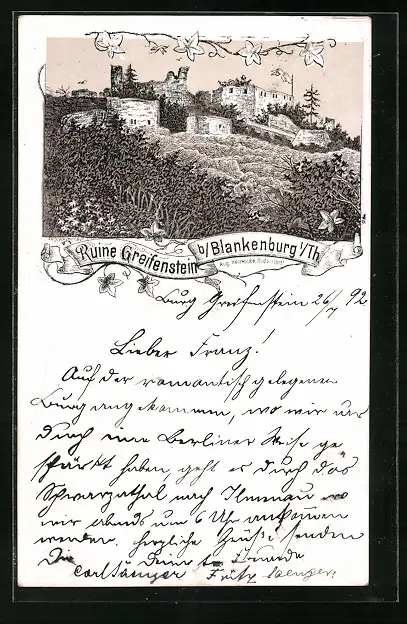 Ruine Greifenstein b/Blankenburg i/Th.
Burg Greifenstein 26/7 92
Lieber Franz!
Auf der romantisch gelegenen
Burg angekommen, wo wir uns
durch eine Berliner Weiße ge
stärkt haben, geht es durch das
Schwarzathal nach Ilmenau wo
wir abends um 6 Uhr ankommen
werden. Herzliche Grüße senden
Dir Deine Freunde
Carl Saenger Fritz Saenger